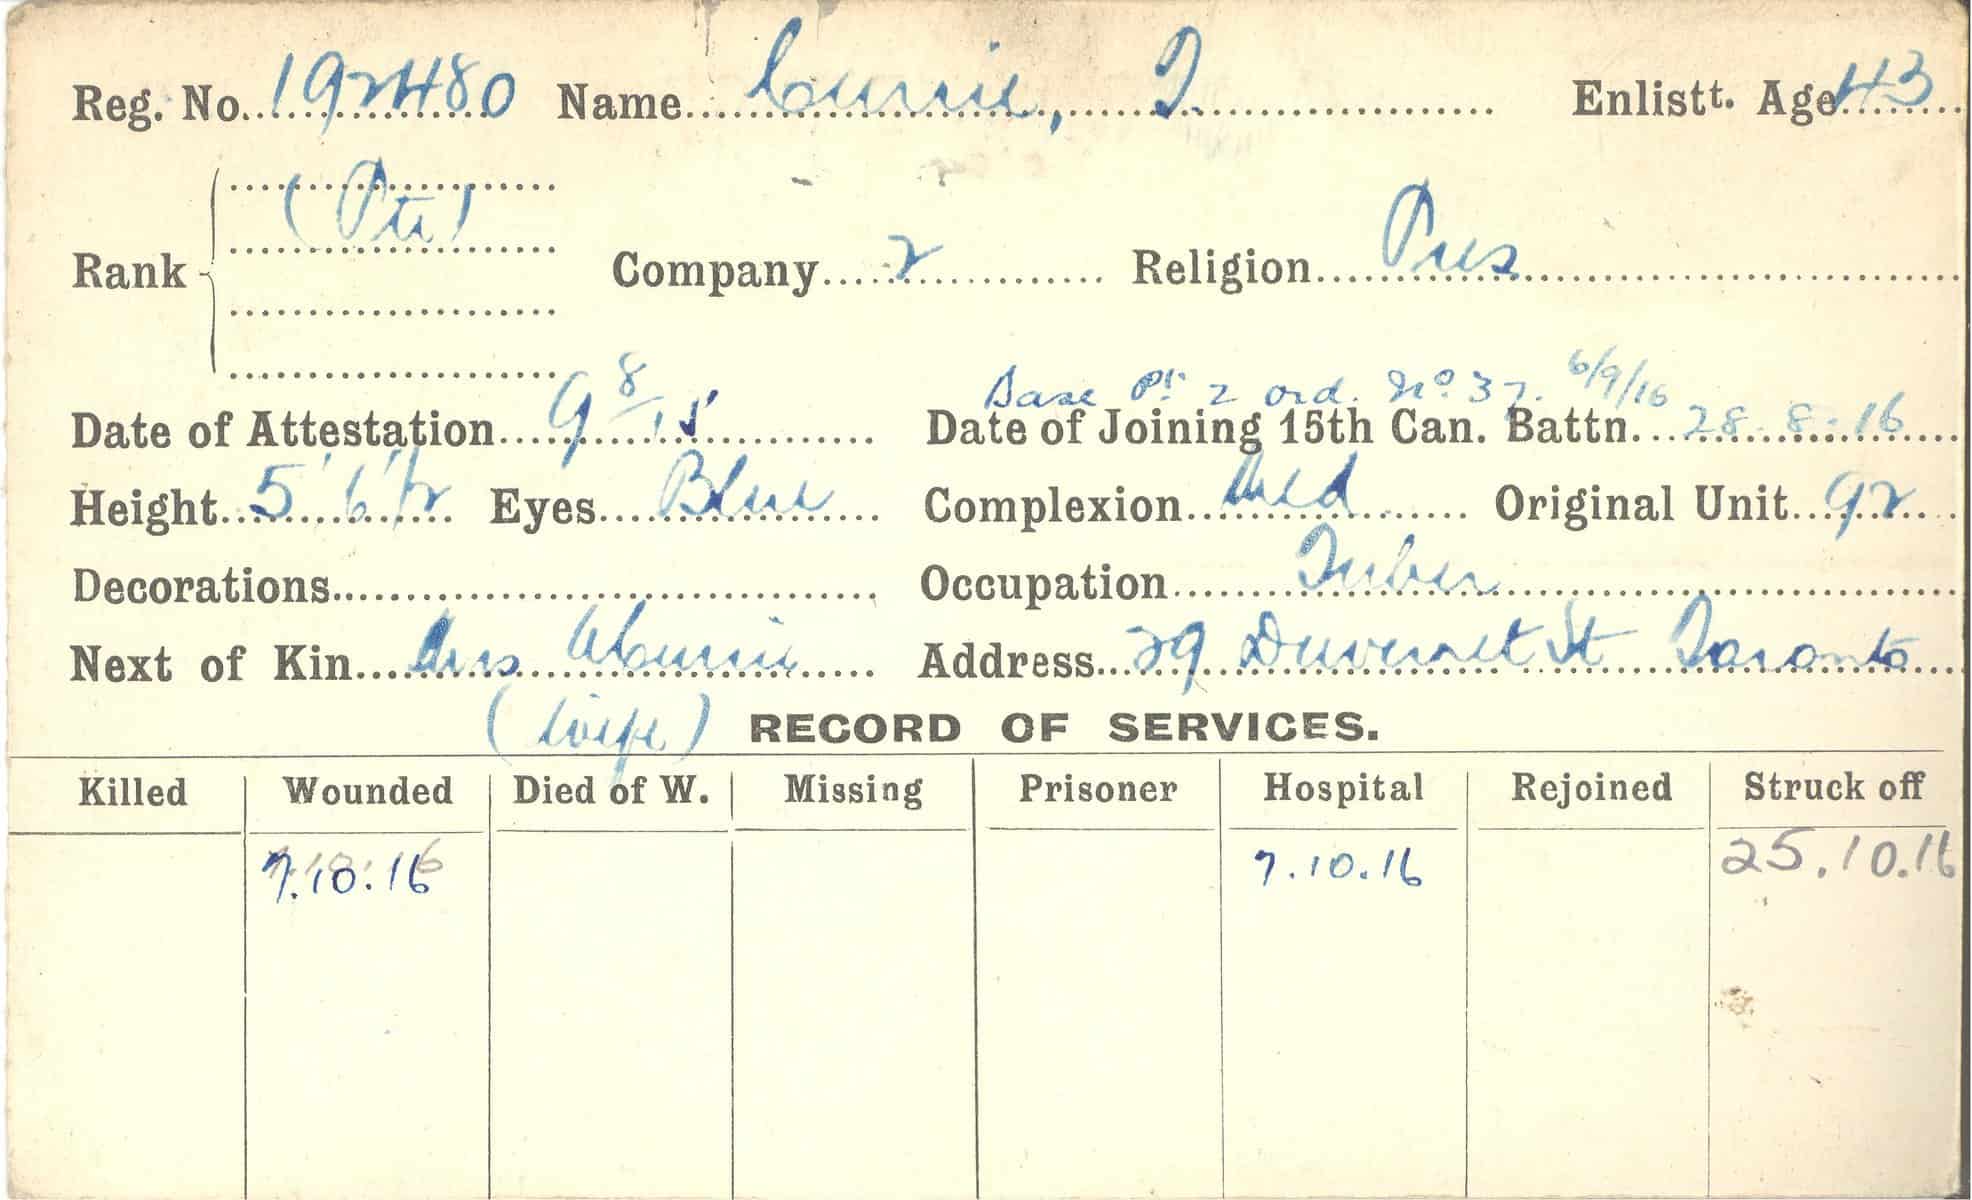 Reg. No. 192480 Name Currie, J. Enlistt. Age 43
(Pte)
Rank Company 2 Religion Pres
Base Pt 2 ord. No 37. 6/9/16
Date of Attestation 9 8/15 Date of Joining 15th Can. Battn. 28.8.16
Height 5' 6 1/2 Eyes Blue Complexion Med Original Unit 92
Decorations Occupation
Next of Kin Mrs Currie Address 29 St Toronto
(wife) RECORD OF SERVICES.
Killed Wounded Died of W. Missing Prisoner Hospital Rejoined Struck off
7.10.16 7.10.16 25.10.16